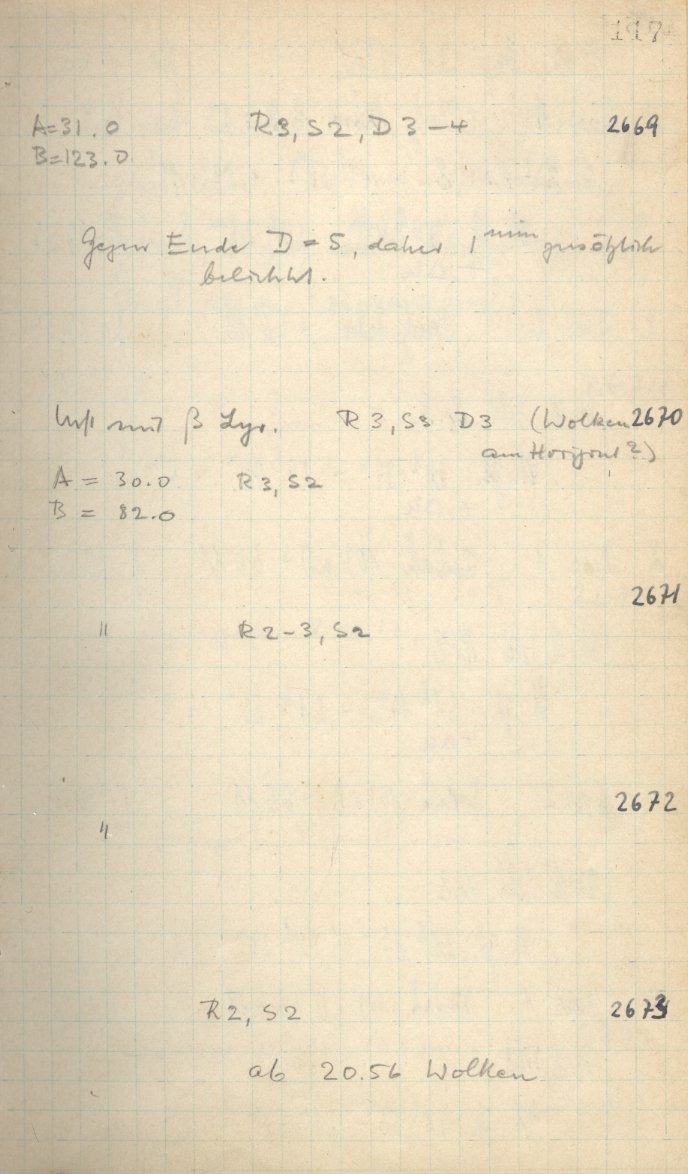 117
A=31.0 R3, S2, D 3-4 2669
B=123.0
Gegen Ende D = 5, daher 1 min zusätzlich
belichtet.
mit β Lyr. R 3, S3 D3 (Wolken 2670
am Horizont?)
A = 30.0 R3, S2
B = 82.0
2671
" R2-3, S2
2672
"
R2, S2 2673
ab 20.56 Wolken